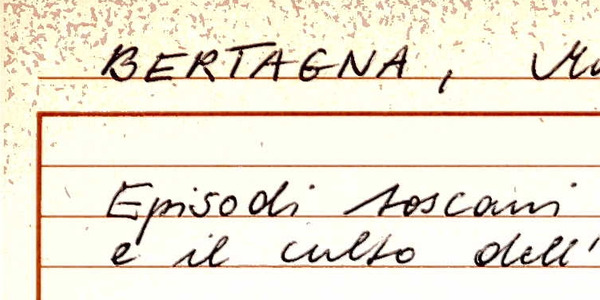 BERTAGNA,
Episodi toscani
e il culto dell'